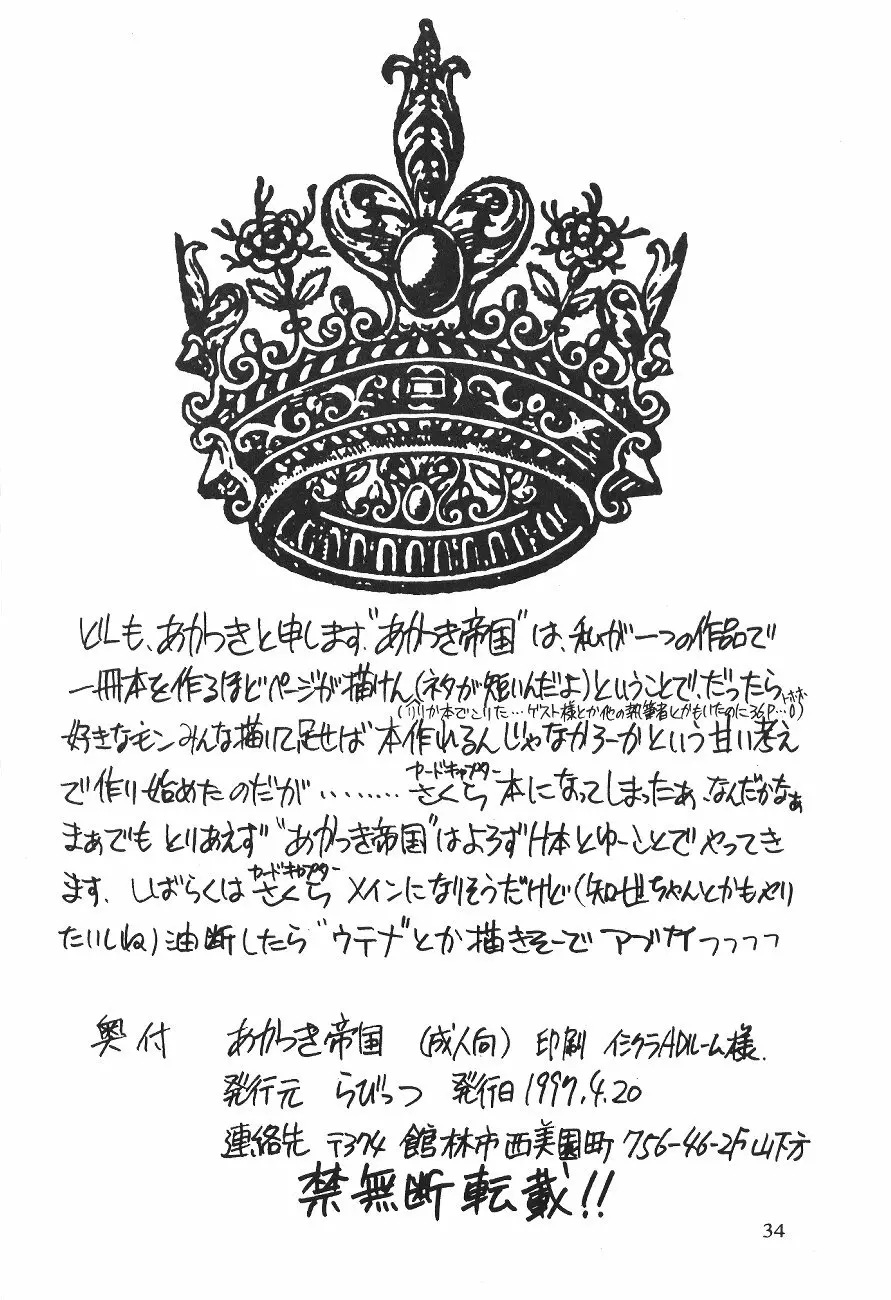 ども、あかつきと申します。"あかつき帝国"は、私が一つの作品で
一冊本を作るほどページが描けん(ネタが短いんだよ)ということで、だったら
(リリカ本でこりた…ゲスト様とか他の執筆者とかもいたのに36P…0)トホホ
好きなモンみんな描いて足せば本作れるんじゃなかろーかという甘い考え
で作り始めたのだが‥‥‥‥
カードキャプター
さくら本になってしまったあ、なんだかなぁ
まぁでもとりあえず"あかつき帝国"はよろずH本とゆーことでやってき
ます。しばらくは
カードキャプター
さくらメインになりそうだけど(知世ちゃんとかもやり
たいしね)油断したら"ウテナ"とか描きそーでアブナイっっっっ
奥付 あかつき帝国 (成人向) 印刷 イシクラADルーム様.
発行元 らびっつ 発行日 1997.4.20
連絡先 〒374 館林市西美園町756-46-2F 山下方
禁無断転載!!
34